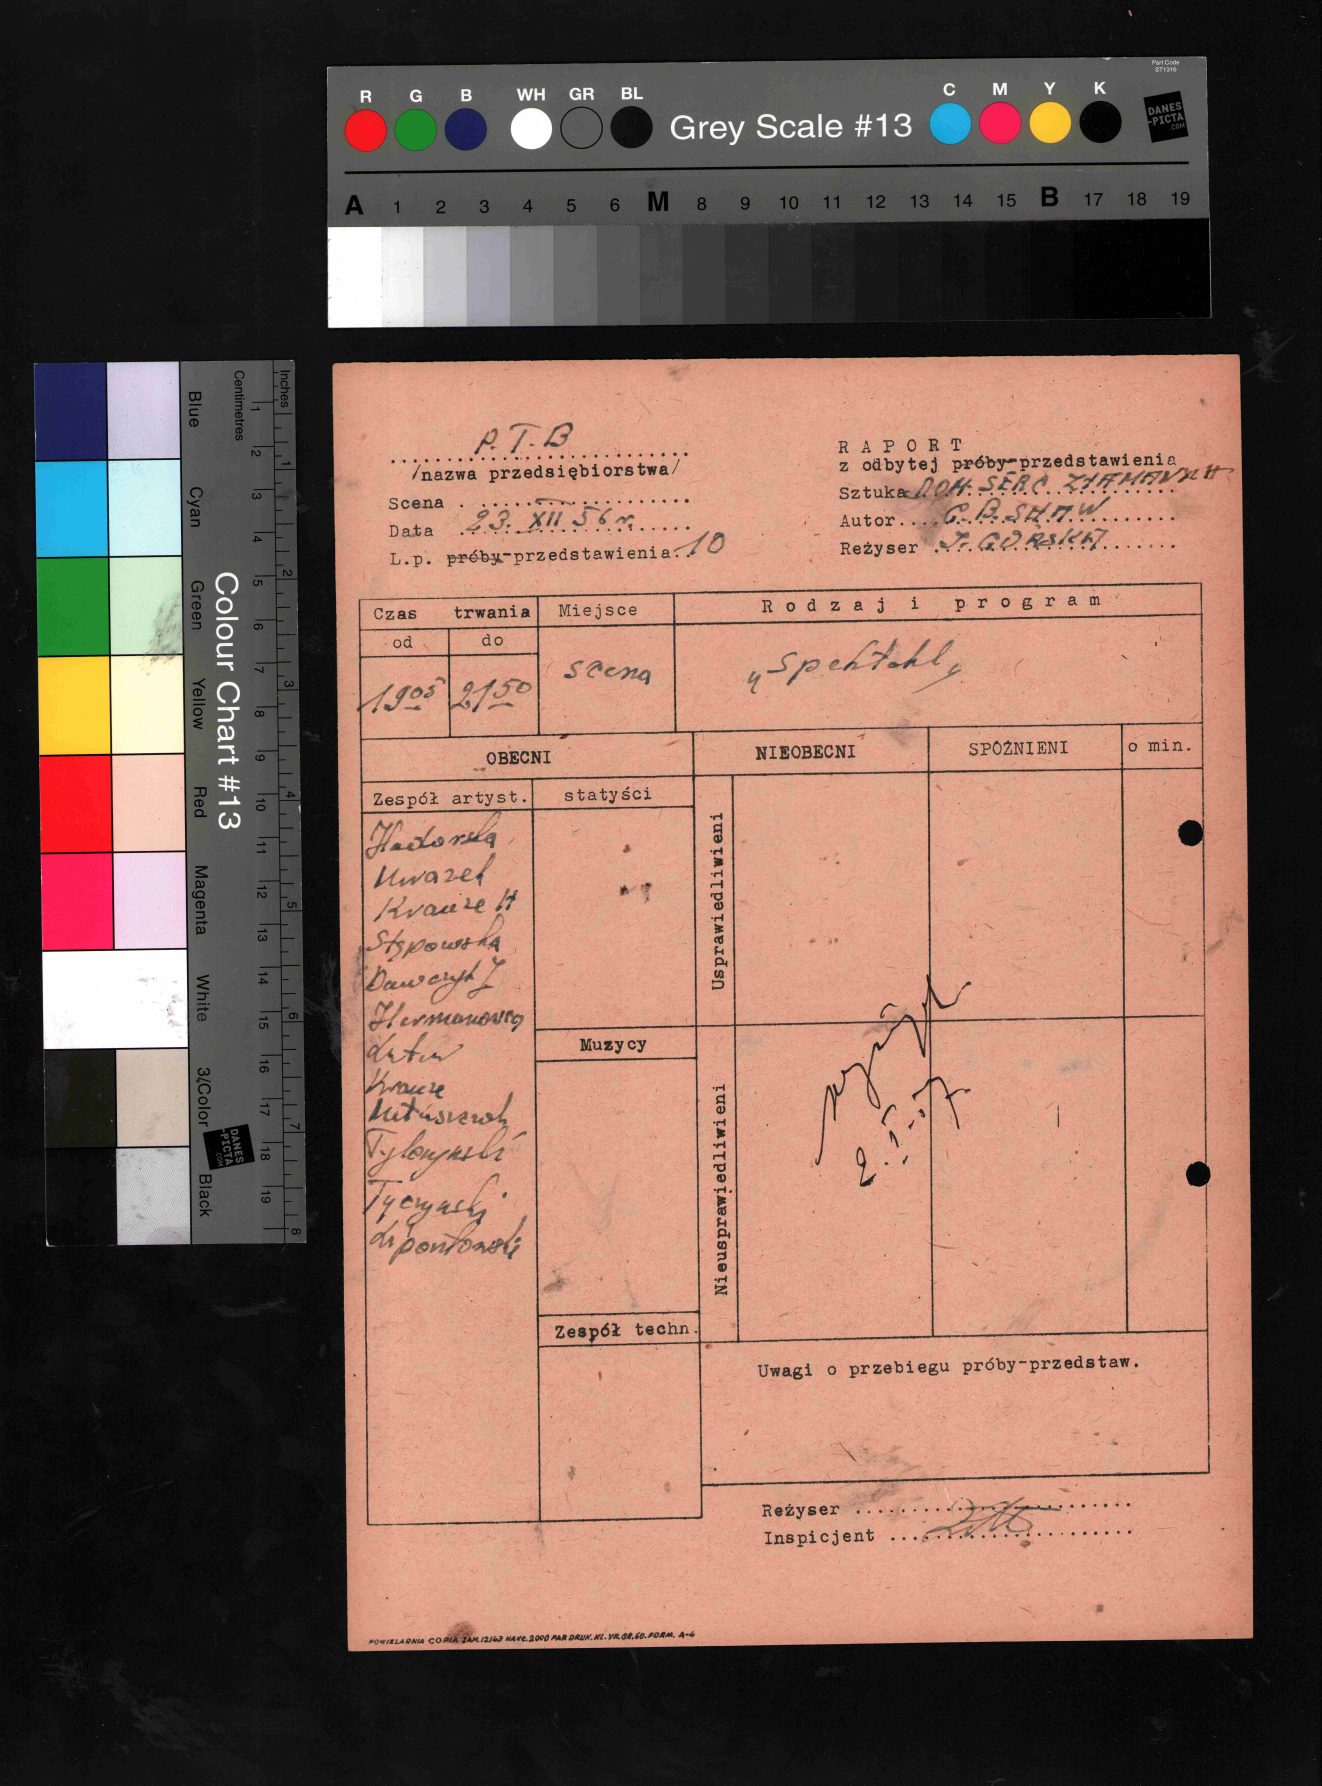 Part Code
ST1316
R G B WH GR BL Grey Scale #13 C M Y K
DANES
-PICTA
.COM
A 1 2 3 4 5 6 M 8 9 10 11 12 13 14 15 B 17 18 19
Colour Chart #13
Blue Cyan Green Yellow Red Magenta White 3/Color Black
Centimetres 1 2 3 4 5 6 7 8 9 10 11 12 13 14 15 16 17 18 19
Inches 1 2 3 4 5 6 7 8
DANES
-PICTA
.COM
P.T.B
/nazwa przedsiębiorstwa/
Scena
Data 23. XII 56 r.
L.p. próby-przedstawienia 10
RAPORT
z odbytej próby-przedstawienia
Sztuka DOM SERC ZŁAMANYCH
Autor G. B. SHAW
Reżyser I. GÓRSKA
Czas trwania Miejsce Rodzaj i program
od do
19 05 21 50 scena „Spektakl„
OBECNI NIEOBECNI SPÓŹNIENI o min.
Zespół artyst. statyści
Usprawiedliwieni
Krauze H
Stępowska
Dawczyk J
Krauze
Tyczyński
Muzycy
Nieusprawiedliwieni
2.I.57
Zespół techn.
Uwagi o przebiegu próby-przedstaw.
Reżyser
Inspicjent
POWIELARNIA COPIA ZAM.12143 NAKŁ.2000 PAP.DRUK.KL.VII.GR.60.FORM. A-4